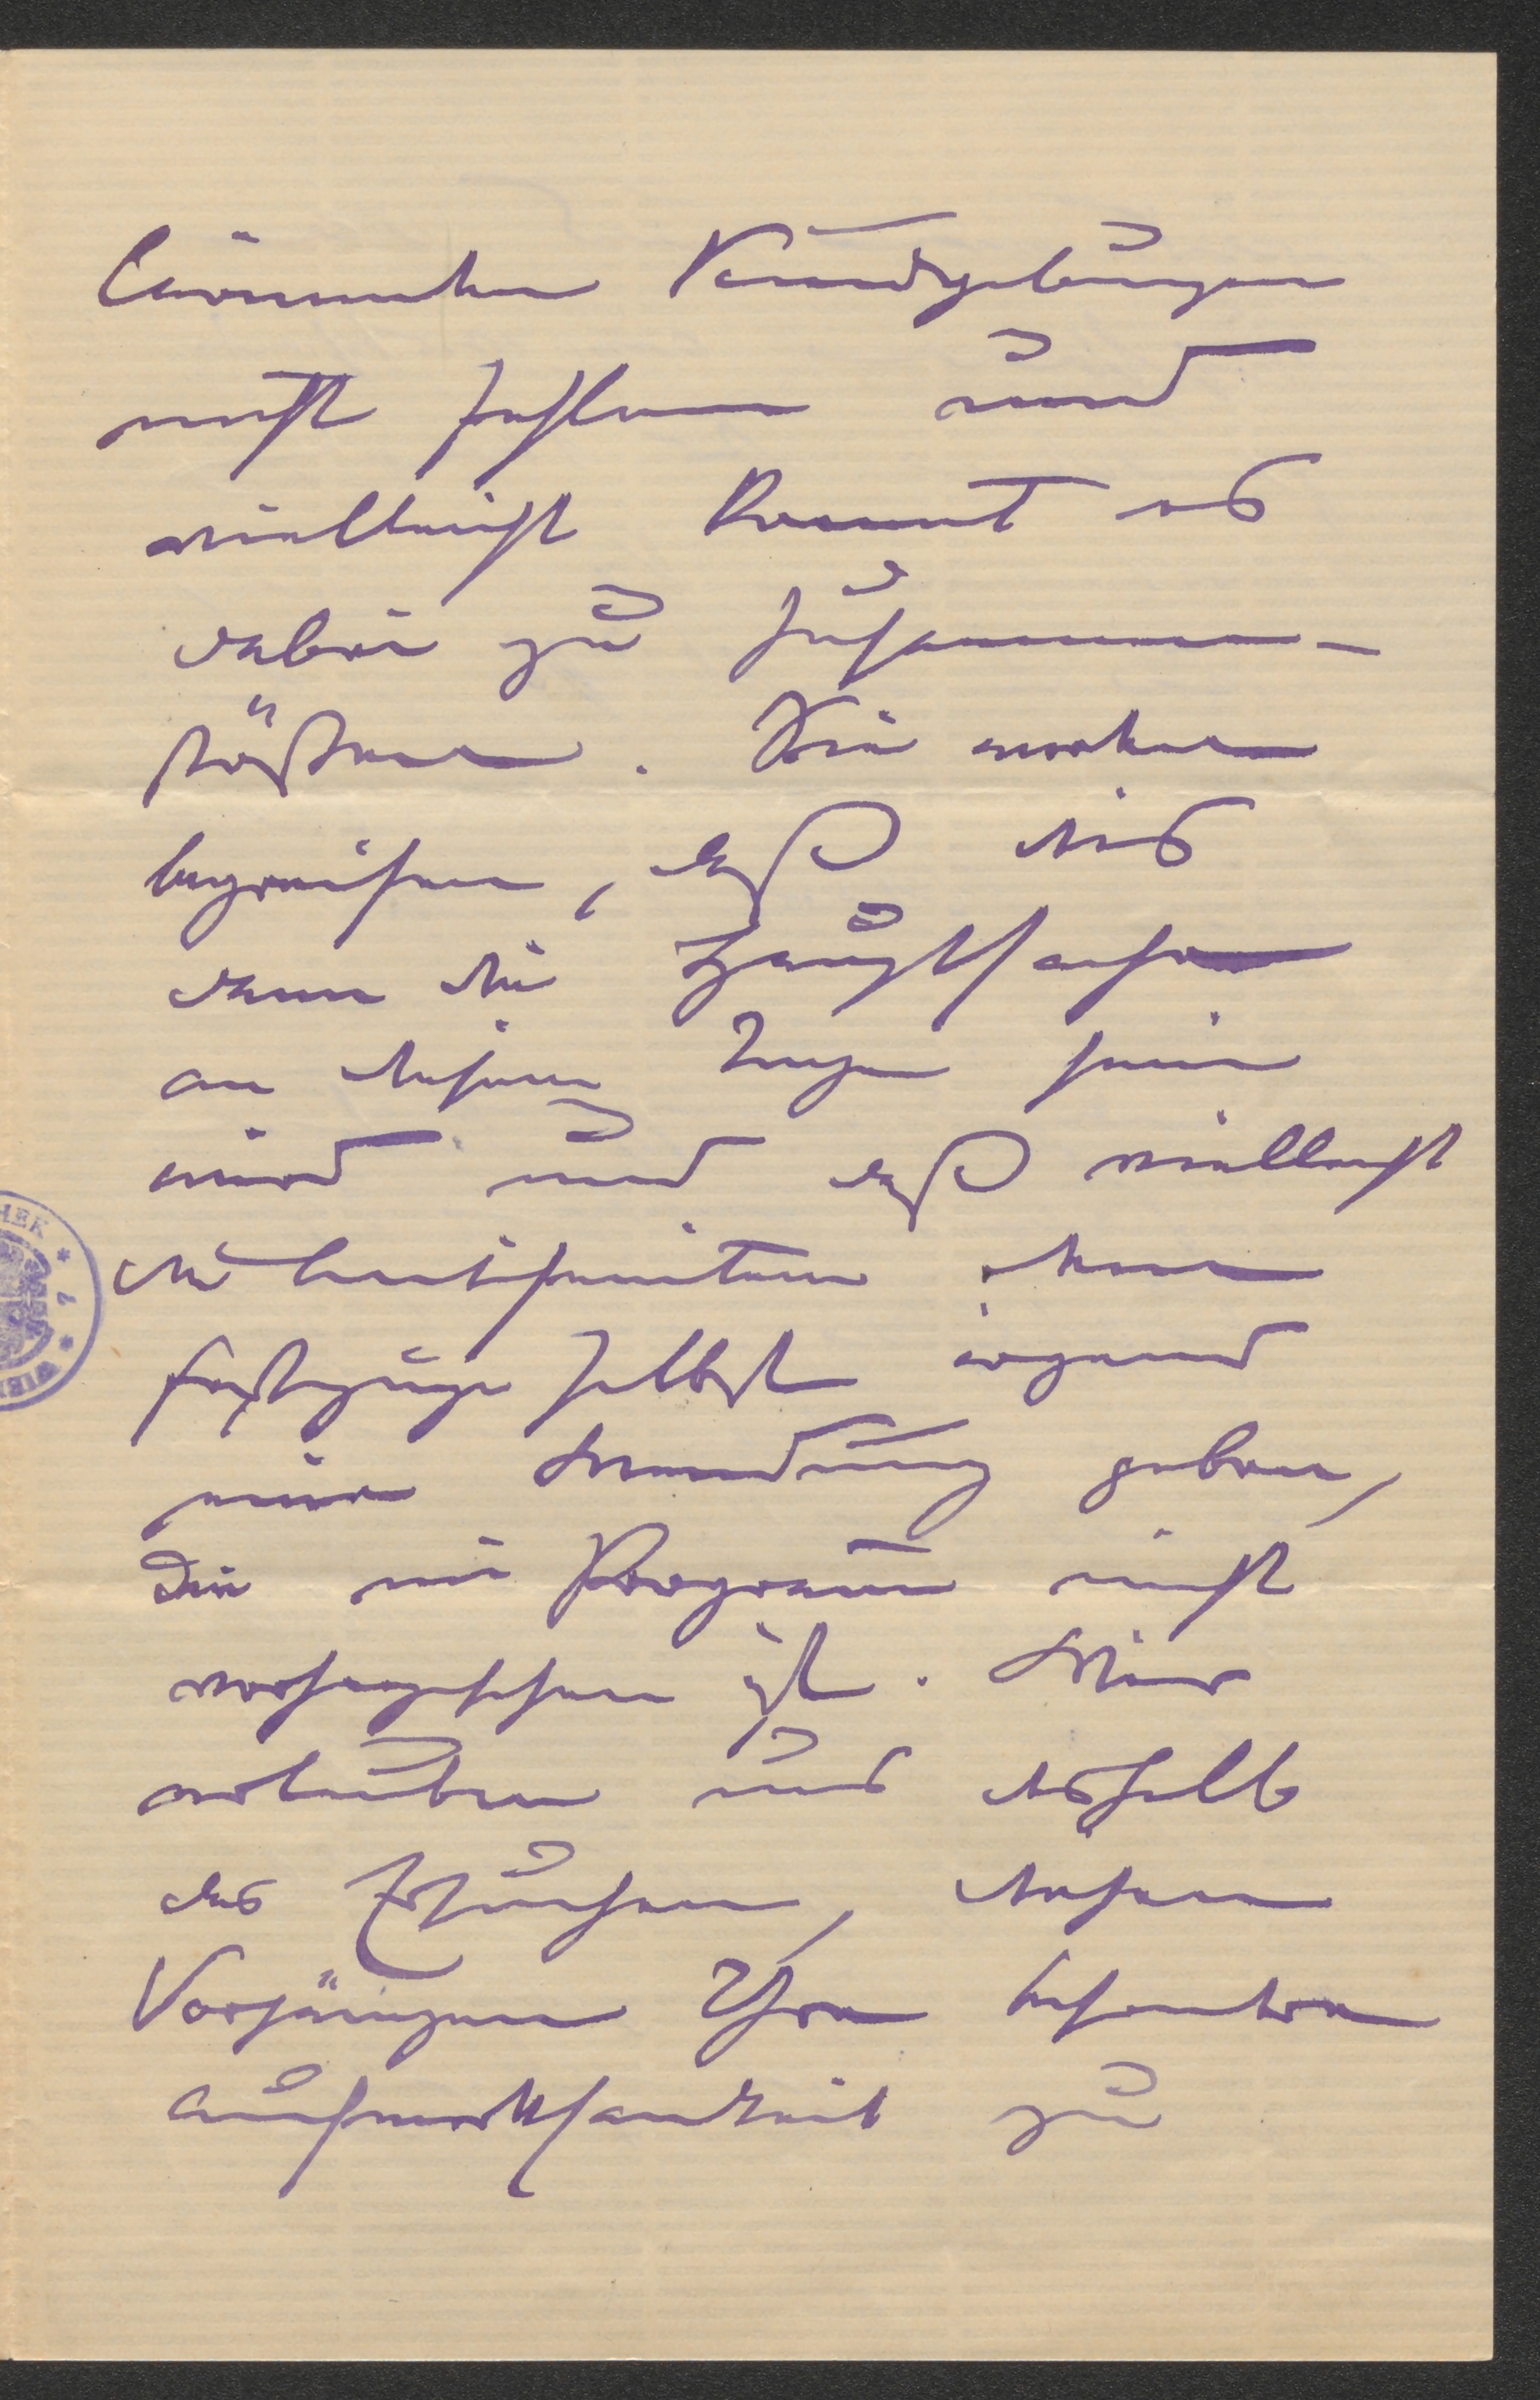 lärmenden Kundgebungen
nicht fehlen und
vielleicht kommt es
dabei zu Zusammen-
stößen. Sie werden
begreifen, daß dies
dann die Hauptsache
an diesem Tage sein
wird und daß vielleicht
die Leutseligen dem
Festzuge selbst irgend
eine Wendung geben,
die im Program nicht
vorhergesehen ist. Wir
erlauben uns deshalb
das Ersuchen, diesen
Vorgängen Ihre besondere
Aufmerksamkeit zu